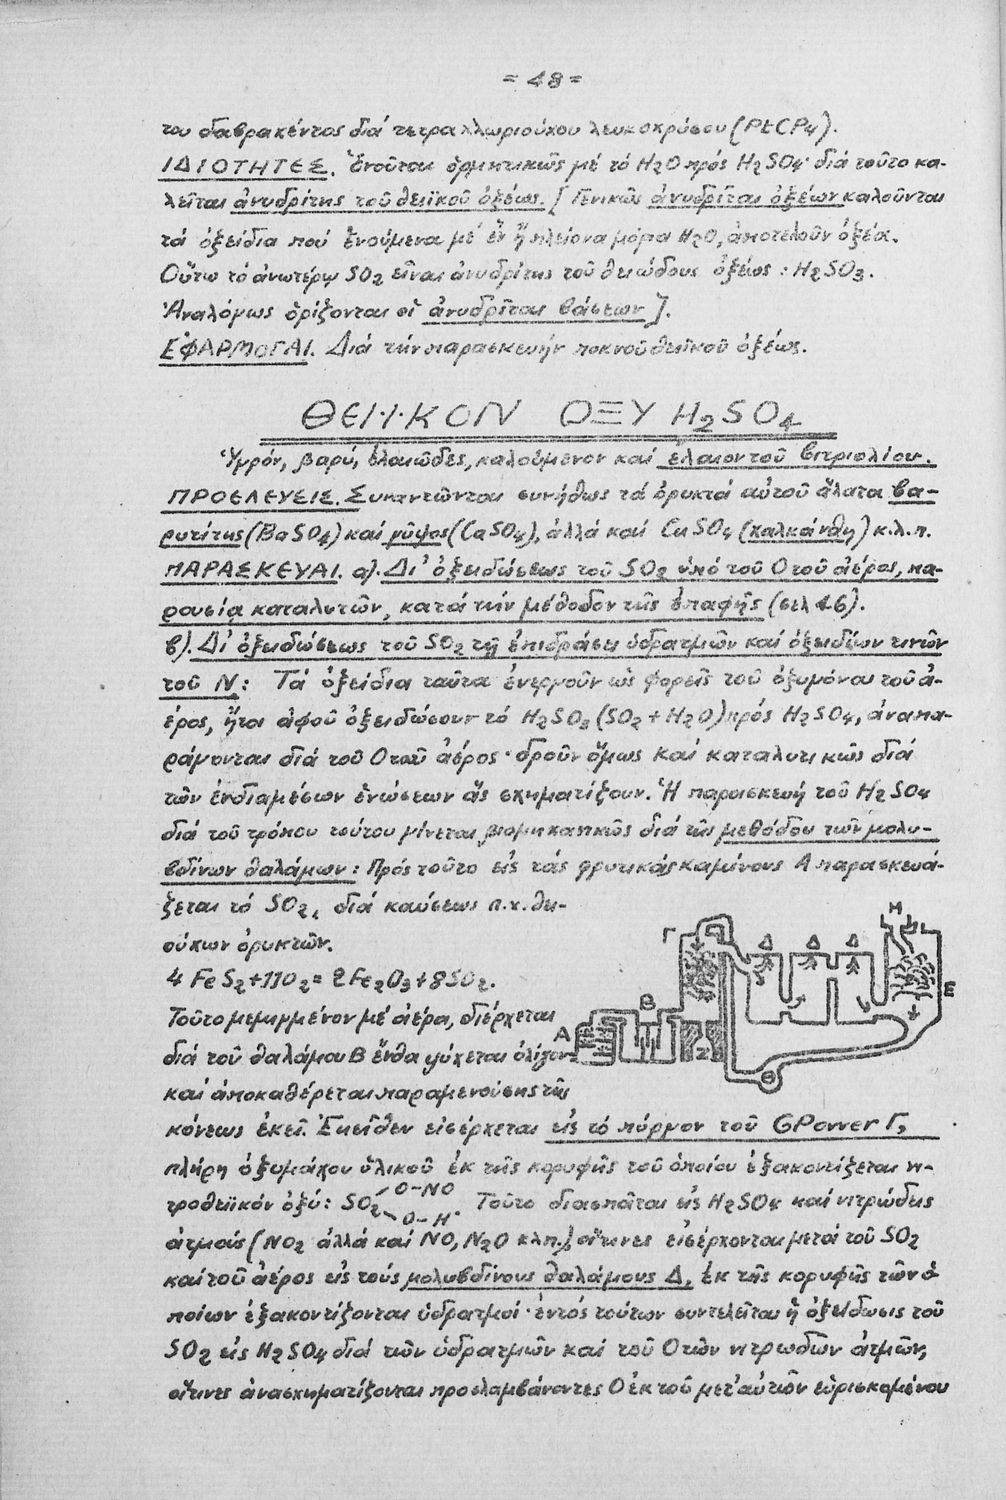 = 48 =
του διαβραχέντος διά τετραχλωριούχου λευκοχρύσου (PtCl4).
ΙΔΙΟΤΗΤΕΣ. Ἑνοῦται ὁρμητικῶς μέ τό H2O πρός H2SO4· διά τοῦτο κα-
λεῖται ἀνυδρίτης τοῦ θειϊκοῦ ὀξέως. [Γενικῶς ἀνυδρῖται ὀξέων καλοῦνται
τά ὀξείδια πού ἑνούμενα μέ ἕν ἤ πλείονα μόρια H2O, ἀποτελοῦν ὀξέα.
Οὕτω τό ἀνωτέρω SO2 εἶναι ἀνυδρίτης τοῦ θειώδους ὀξέος : H2SO3.
Ἀναλόγως ὁρίζονται οἱ ἀνυδρῖται βάσεων].
ΕΦΑΡΜΟΓΑΙ. Διά τήν παρασκευήν πυκνοῦ θειϊκοῦ ὀξέως.
ΘΕΙ·Ι·ΚΟΝ ΟΞΥ H2SO4
Ὑγρόν, βαρύ, ἐλαιῶδες, καλούμενον καί ἔλαιον τοῦ βιτριολίου.
ΠΡΟΕΛΕΥΣΙΣ. Συναντῶνται συνήθως τά ὀρυκτά αὐτοῦ ἅλατα βα-
ρυτίτης (BaSO4) καί γύψος (CaSO4), ἀλλά καί CuSO4 (χαλκάνθη) κ.λ.π.
ΠΑΡΑΣΚΕΥΑΙ. α). Δι' ὀξειδώσεως τοῦ SO2 ὑπό τοῦ O τοῦ ἀέρος, πα-
ρουσίᾳ καταλυτῶν, κατά τήν μέθοδον τῆς ἐπαφῆς (σελ 46).
β). Δι' ὀξειδώσεως τοῦ SO2 τῇ ἐπιδράσει ὑδρατμῶν καί ὀξειδίων τινῶν
τοῦ N : Τά ὀξείδια ταῦτα ἐνεργοῦν ὡς φορεῖς τοῦ ὀξυγόνου τοῦ ἀ-
έρος, ἤτοι ἀφοῦ ὀξειδώσουν τό H2SO3 (SO2 + H2O) πρός H2SO4, ἀναπα-
ράγονται διά τοῦ O τοῦ ἀέρος· δροῦν ὅμως καί καταλυτικῶς διά
τῶν ἐνδιαμέσων ἑνώσεων ἅς σχηματίζουν. Ἡ παρασκευή τοῦ H2SO4
διά τοῦ τρόπου τούτου γίνεται βιομηχανικῶς διά τῆς μεθόδου τῶν μολυ-
βδίνων θαλάμων : Πρός τοῦτο εἰς τάς φρυτικάς καμίνους Α παρασκευά-
ζεται τό SO2, διά καύσεως π.χ. θει-
ούχων ὀρυκτῶν.
4 FeS2+11O2= 2Fe2O3+8SO2.
Τοῦτο μεμιγμένον μέ ἀέρα, διέρχεται
διά τοῦ θαλάμου Β ἔνθα ψύχεται ὀλίγον
καί ἀποκαθέρεται παραμενούσης τῆς
Α
Β
Γ
Ζ
Δ
Δ
Δ
Η
Ε
Θ
κόνεως ἐκεῖ. Ἐκεῖθεν εἰσέρχεται εἰς τό πύργον τοῦ GPower Γ,
πλήρη ὀξυμάχου ὑλικοῦ ἐκ τῆς κορυφῆς τοῦ ὁποίου ἐξακοντίζεται νι-
τροθειϊκόν ὀξύ : SO2 O-NO O-H. Τοῦτο διασπᾶται εἰς H2SO4 καί νιτρώδεις
ἀτμούς (NO2 ἀλλά καί NO, N2O κλπ.) οἵτινες εἰσέρχονται μετά τοῦ SO2
καί τοῦ ἀέρος εἰς τούς μολυβδίνους θαλάμους Δ, ἐκ τῆς κορυφῆς τῶν ὁ-
ποίων ἐξακοντίζονται ὑδρατμοί· ἐντός τούτων συντελεῖται ἡ ὀξείδωσις τοῦ
SO2 εἰς H2SO4 διά τῶν ὑδρατμῶν καί τοῦ O τῶν νιτρωδῶν ἀτμῶν,
οἵτινες ἀνασχηματίζονται προσλαμβάνοντες O ἐκ τοῦ μετ' αὐτῶν εὑρισκομένου